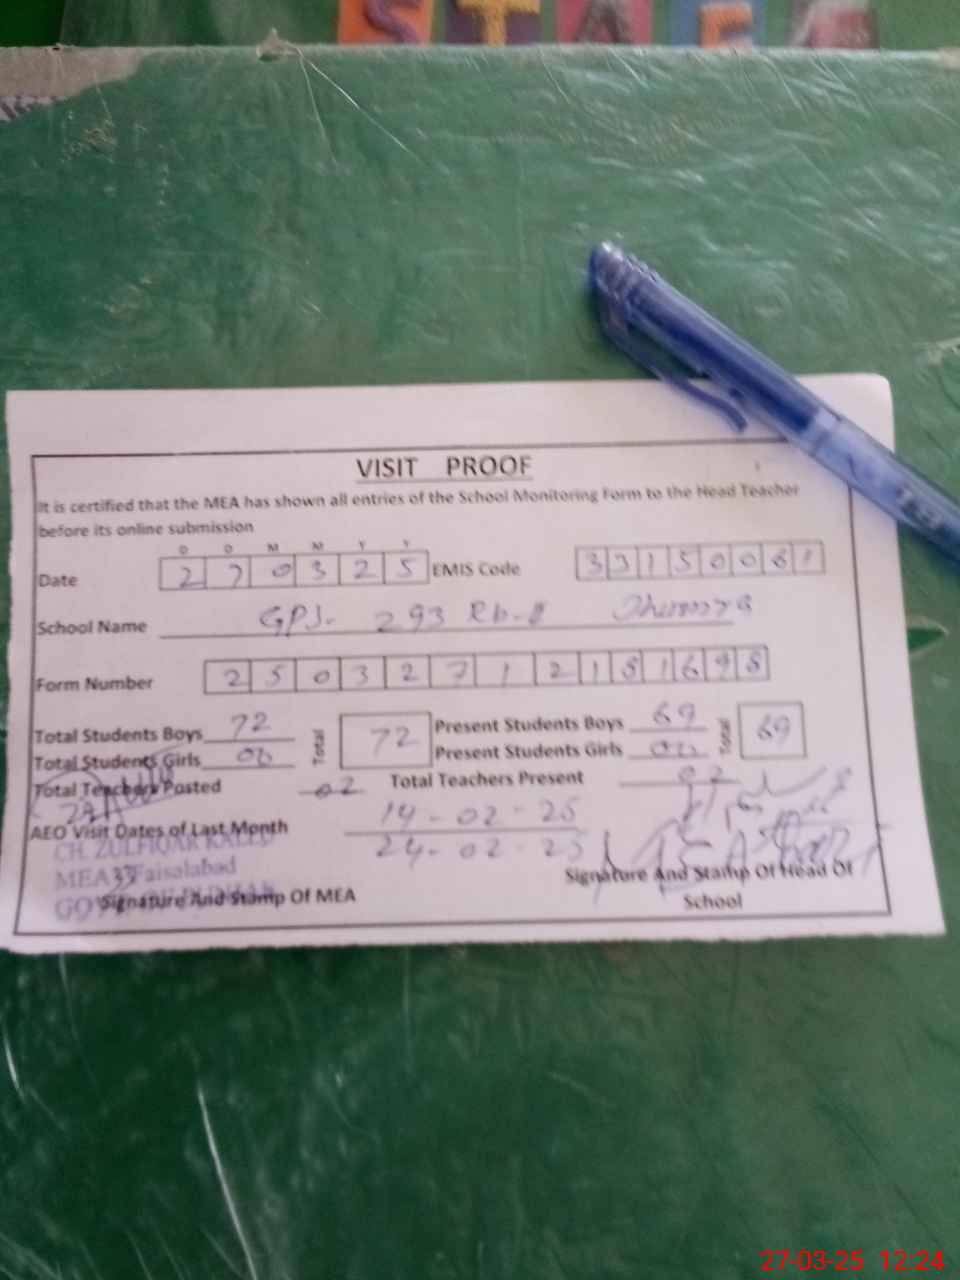 STAFF
VISIT PROOF
It is certified that the MEA has shown all entries of the School Monitoring Form to the Head Teacher
before its online submission
D D M M Y Y
Date 2 7 0 3 2 5 EMIS Code 3 3 1 5 0 0 6 1
School Name GPS. 293 Rb-II
Form Number 2 5 0 3 2 7 1 2 1 8 1 6 9 8
Total Students Boys 72 Total 72 Present Students Boys 69 Total 69
Total Students Girls 00 Present Students Girls 00
Total Teachers Posted 02 Total Teachers Present 02
AEO Visit Dates of Last Month 14-02-25
24-02-25
CH. ZULFIQAR
MEA 33 Faisalabad
Signature And Stamp Of MEA
Signature And Stamp Of Head Of
School
27-03-25 12:24